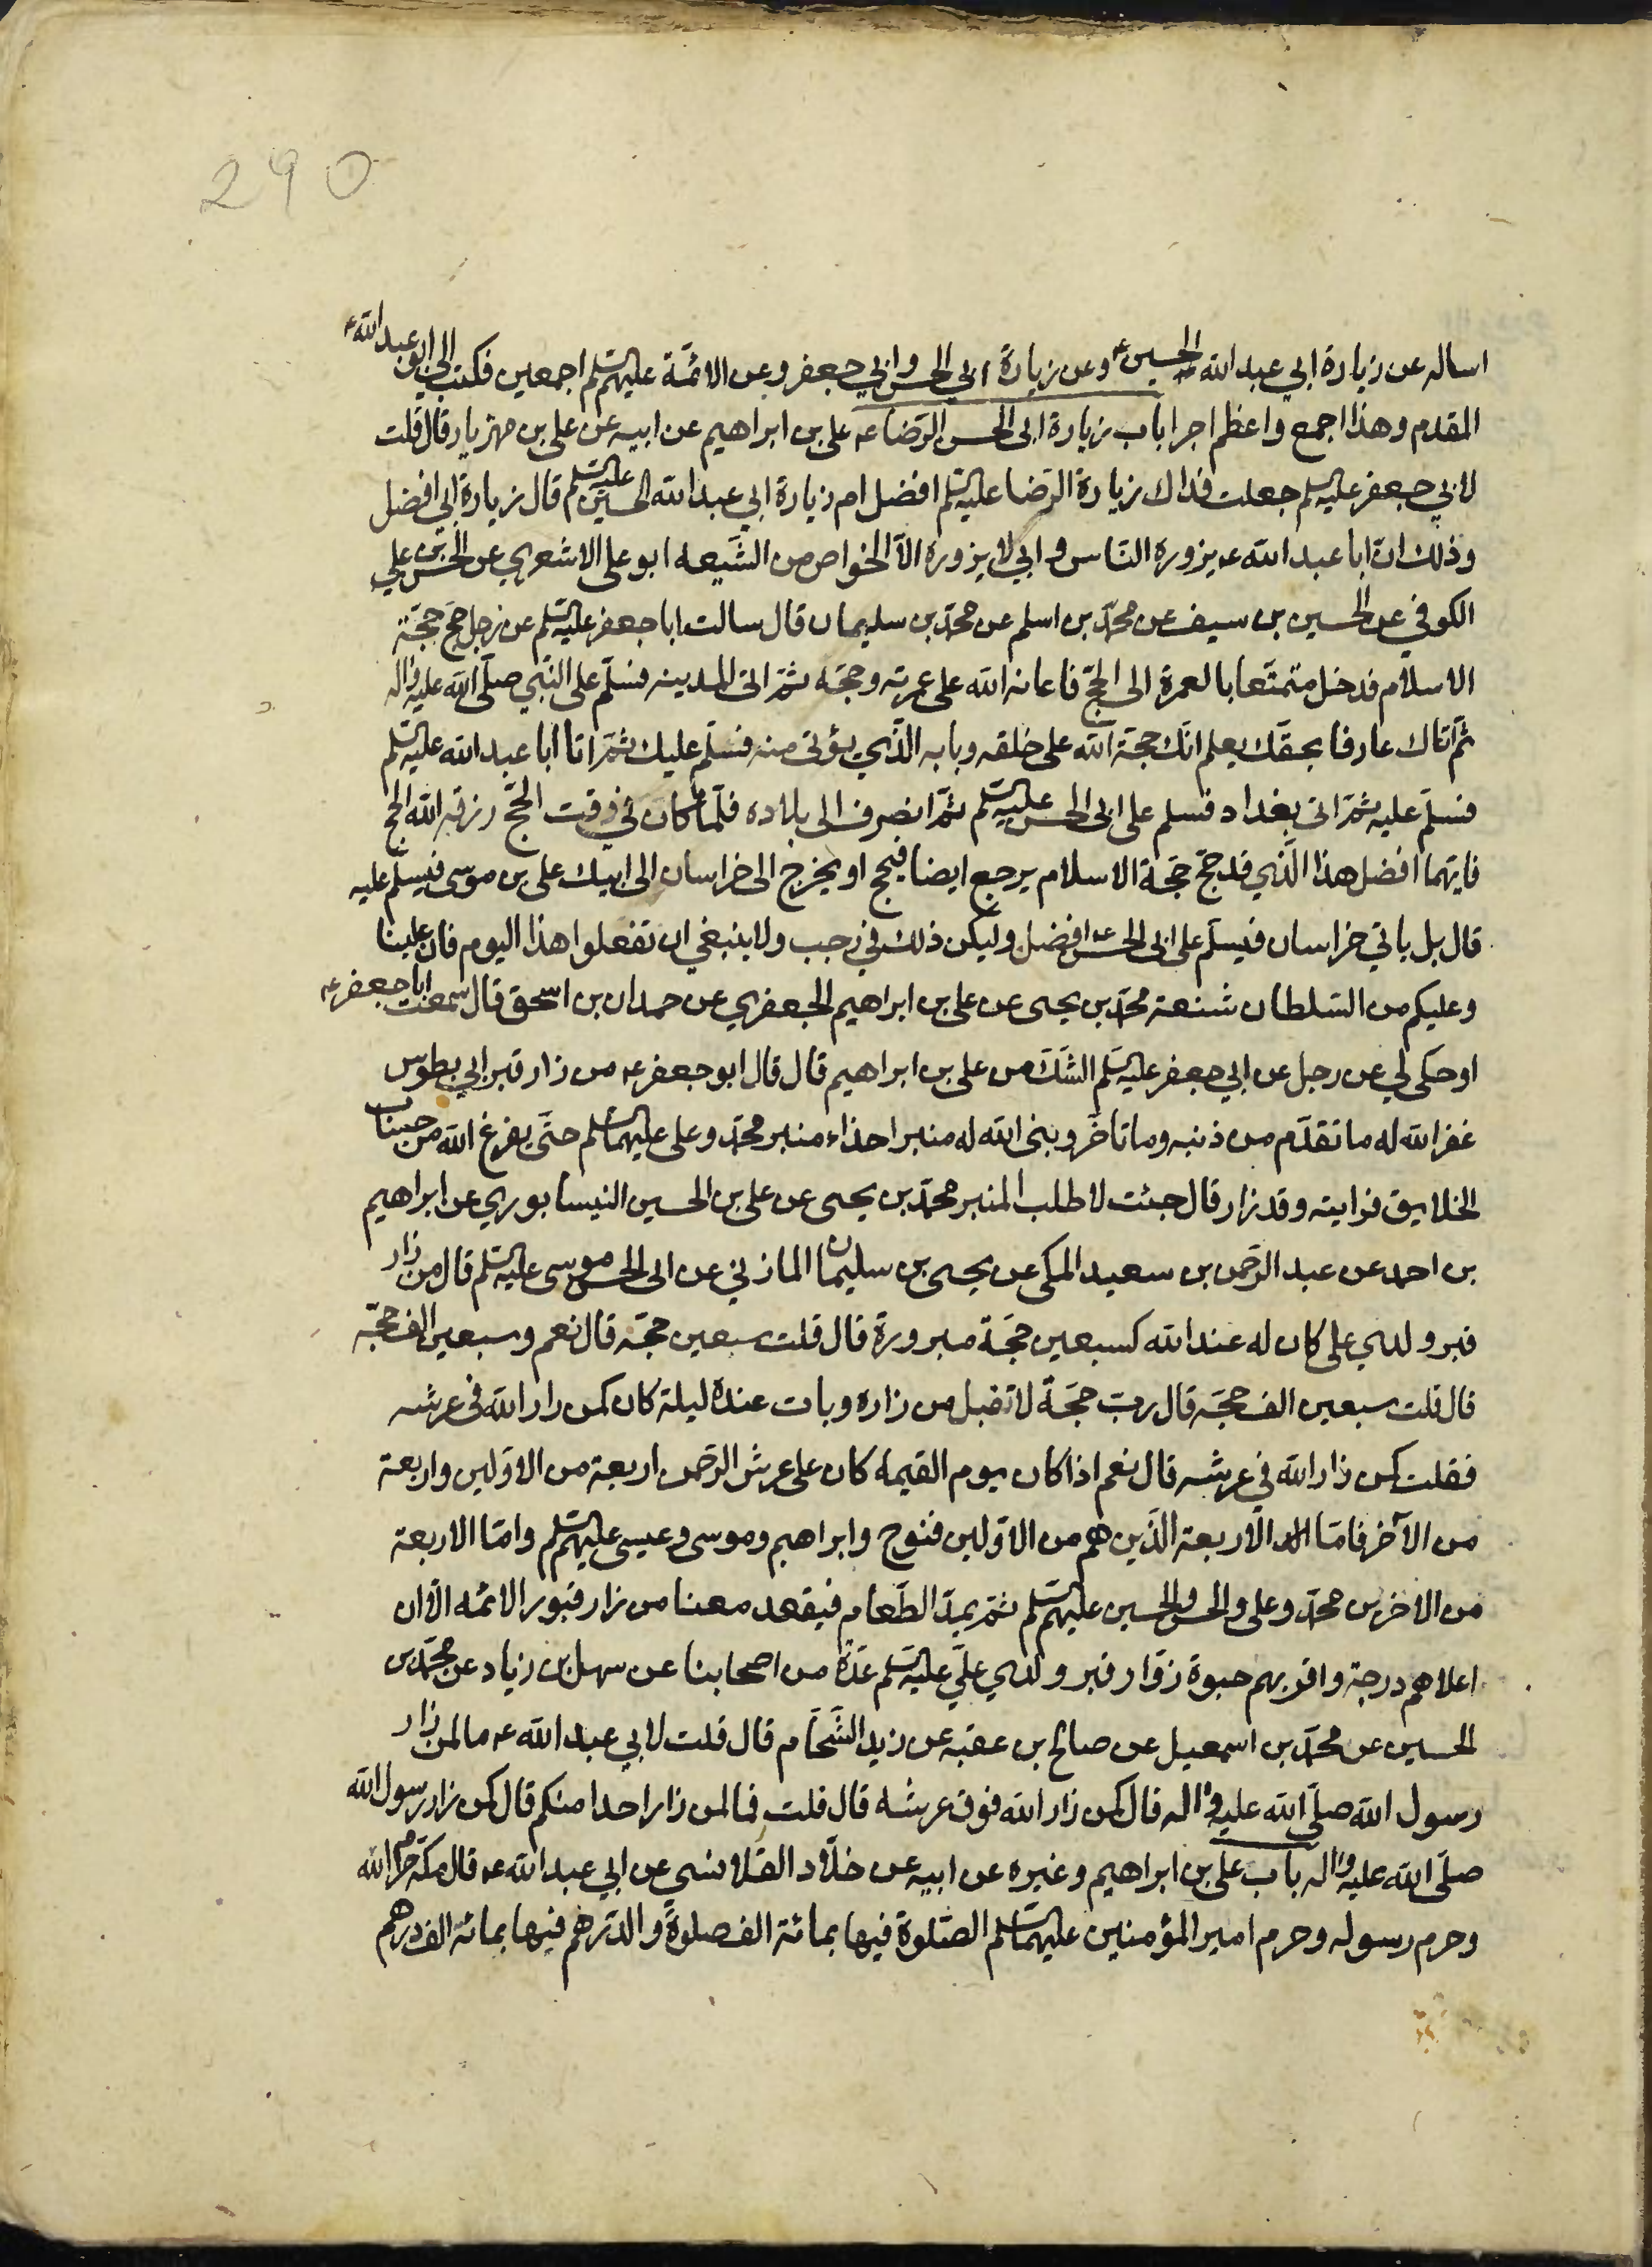 290
اساله عن زيارة ابي عبد الله الحسين ع وعن زيارة ابي الحسن وابي جعفر وعن الائمّة عليهم السّلم اجمعين فكتب الىّ ابو عبد الله ع
المقدم وهذا اجمع واعظم اجرا باب زيارة ابى الحسن الرّضا ع على بن ابراهيم عن ابيه عن على بن مهزيار قال قلت
لابي جعفر عليه السّلم جعلت فداك زيارة الرّضا عليه السّلم افضل ام زيارة ابي عبد الله الحسين عليه السّلم قال زيارة ابي افضل
وذلك انّ ابا عبد الله ع يزوره النّاس وابي لا يزوره الاّ الخواص من الشّيعه ابو على الاشعري عن الحسن بن علي
الكوفي عن الحسين بن سيف عن محمّد بن اسلم عن محمّد بن سليمان قال سالت ابا جعفر عليه السّلم عن رجل حجّ حجّة
الاسلام فدخل متمتّعا بالعمرة الى الحجّ فاعانه الله على عمرته وحجّه ثمّ اتى المدينه فسلّم على النّبي صلّى الله عليه واله
ثمّ اتاك عارفا بحقّك يعلم انّك حجّة الله على خلقه وبابه الّذي يؤتى منه فسلّم عليك ثمّ اتا ابا عبد الله عليه السّلم
فسلّم عليه ثمّ اتى بغداد فسلم على ابى الحسن عليه السّلم ثمّ انصرف الى بلاده فلمّا كان في وقت الحجّ رزقه الله الحج
فايّهما افضل هذا الّذي قد حجّ حجّة الاسلام يرجع ايضا فيحج او يخرج الى خراسان الى ابيك على بن موسى فيسلّم عليه
قال بل ياتي خراسان فيسلّم على ابى الحسن ع افضل وليكن ذلك في رجب ولا ينبغي ان تفعلوا هذا اليوم فان علينا
وعليكم من السّلطان شنعة محمّد بن يحيى عن على بن ابراهيم الجعفري عن حمدان بن اسحق قال سمعت ابا جعفر ع
او حكى لي عن رجل عن ابي جعفر عليه السّلم الشّكّ من على بن ابراهيم قال قال ابو جعفر ع من زار قبر ابي بطوس
غفر الله له ما تقدّم من ذنبه وما تاخّر وبنى الله له منبرا حذاء منبر محمّد وعلى عليهما السّلم حتّى يفرغ الله من حساب
الخلايق فرايته وقد زار قال جئت لاطلب المنبر محمّد بن يحيى عن على بن الحسين النيسابوري عن ابراهيم
بن احمد عن عبد الرّحمن بن سعيد المكى عن يحيى بن سليمان المازني عن ابى الحسن موسى عليه السّلم قال من زار
قبر ولدي على كان له عند الله كسبعين حجّة مبرورة قال قلت سبعين حجّه قال نعم وسبعين الف حجّه
قال قلت سبعين الف حجّه قال ربّ حجّة لا تقبل من زاره وبات عنده ليلة كان كمن زار الله في عرشه
فقلت كمن زار الله في عرشه قال نعم اذا كان يوم القيمه كان على عرش الرّحمن اربعة من الاوّلين واربعة
من الآخر فامّا الاربعة الّذين هم من الاوّلين فنوح وابراهيم وموسى وعيسى عليهم السّلم وامّا الاربعة
من الاخرين محمّد وعلى والحسن والحسين عليهم السّلم ثمّ يمدّ الطّعام فيقعد معنا من زار قبور الائمّه الاّ ان
اعلاهم درجة واقربهم حبوة زوّار قبر ولدي عليّ عليه السّلم عدّة من اصحابنا عن سهل بن زياد عن محمّد بن
الحسين عن محمّد بن اسمعيل عن صالح بن عقبه عن زيد الشّحّام قال قلت لابي عبد الله ع ما لمن زار
رسول الله صلّى الله عليه واله قال كمن زار الله فوق عرشه قال قلت فما لمن زار احدا منكم قال كمن زار رسول الله
صلّى الله عليه واله باب على بن ابراهيم وغيره عن ابيه عن خلّاد القلانسي عن ابي عبد الله ع قال مكّة حرم الله
وحرم رسوله وحرم امير المؤمنين عليهما السّلم الصّلوة فيها بمائة الف صلوة والدّرهم فيها بمائة الف درهم